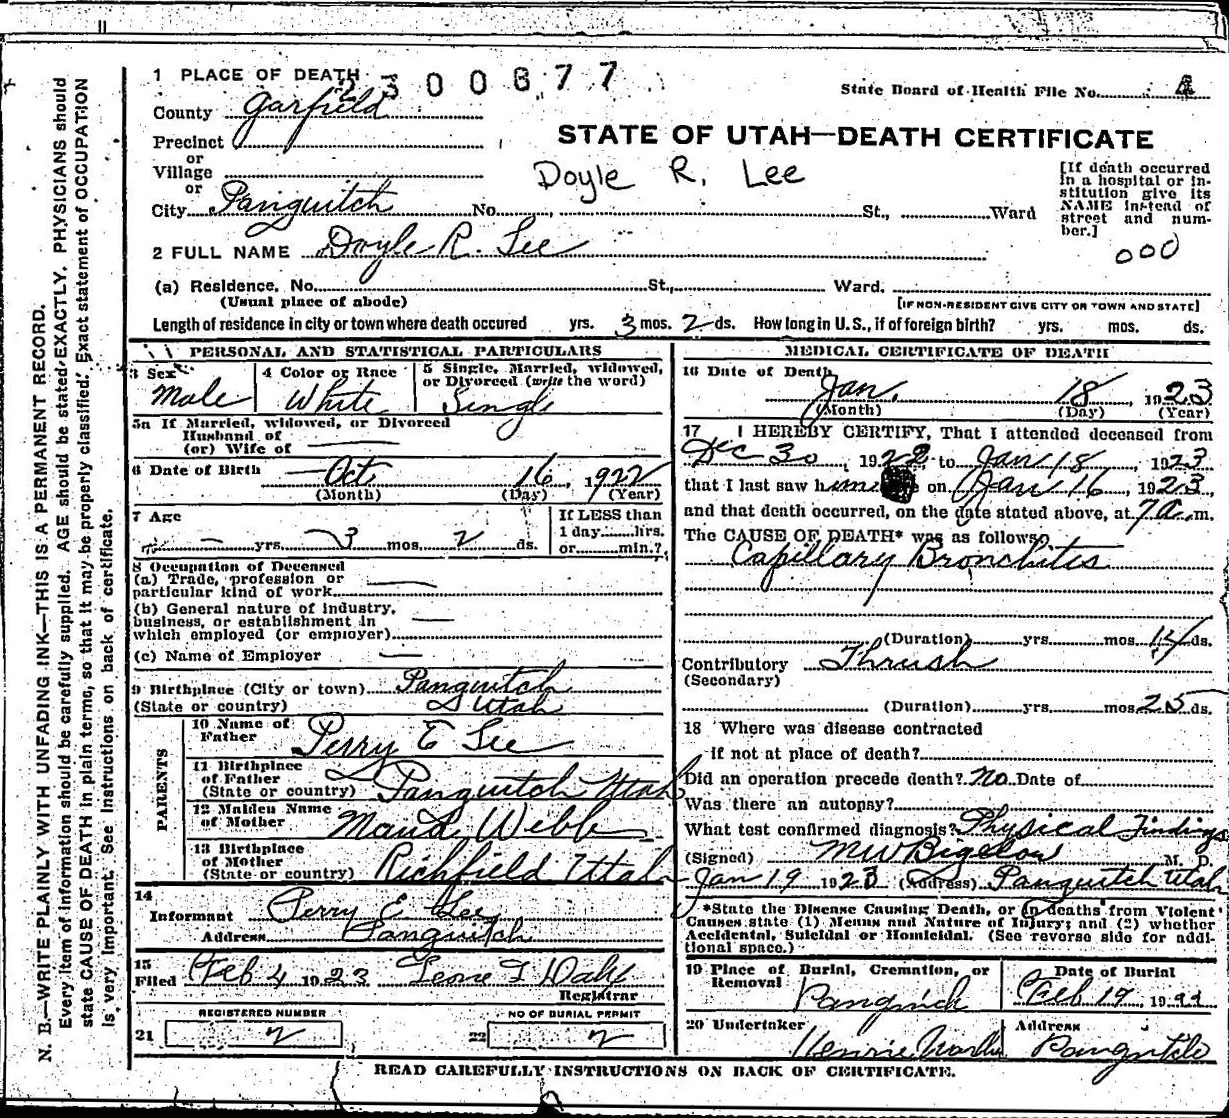 1 PLACE OF DEATH
2300677
State Board of Health File No. 4
County Garfield
Precinct
or
Village
or
City Panguitch No. St., Ward
STATE OF UTAH—DEATH CERTIFICATE
Doyle R. Lee
[If death occurred
in a hospital or in-
stitution give its
NAME instead of
street and num-
ber.]
000
2 FULL NAME Doyle R. Lee
(a) Residence, No. St., Ward.
(Usual place of abode)
[IF NON-RESIDENT GIVE CITY OR TOWN AND STATE]
Length of residence in city or town where death occured yrs. 3 mos. 2 ds. How long in U.S., if of foreign birth? yrs. mos. ds.
PERSONAL AND STATISTICAL PARTICULARS
3 Sex
Male
4 Color or Race
White
5 Single, Married, widowed,
or Divorced (write the word)
Single
5a If Married, widowed, or Divorced
Husband of
(or) Wife of
6 Date of Birth Oct 16, 1922
(Month) (Day) (Year)
7 Age
yrs. 3 mos. 2 ds.
If LESS than
1 day hrs.
or min.?
8 Occupation of Deceased
(a) Trade, profession or
particular kind of work
(b) General nature of industry,
business, or establishment in
which employed (or employer)
(c) Name of Employer
9 Birthplace (City or town) Panguitch
(State or country) Utah
PARENTS
10 Name of
Father Perry E Lee
11 Birthplace
of Father
(State or country) Panguitch Utah
12 Maiden Name
of Mother Maud Webb
13 Birthplace
of Mother
(State or country) Richfield Utah
14
Informant Perry E Lee
Address Panguitch
15
Filed Feb 4 1923
Registrar
REGISTERED NUMBER
21 2
NO OF BURIAL PERMIT
22 2
MEDICAL CERTIFICATE OF DEATH
16 Date of Death
Jan. 18, 1923
(Month) (Day) (Year)
17 I HEREBY CERTIFY, That I attended deceased from
Dec 30, 1922, to Jan 18, 1923
that I last saw him on Jan 16, 1923,
and that death occurred, on the date stated above, at 7 a.m.
The CAUSE OF DEATH* was as follows:
Capillary Bronchitis
(Duration) yrs. mos. 14 ds.
Contributory Thrush
(Secondary)
(Duration) yrs. mos. 25 ds.
18 Where was disease contracted
if not at place of death?
Did an operation precede death? No Date of
Was there an autopsy?
What test confirmed diagnosis? Physical Findings
(Signed) M W Bigelow M. D.
Jan 19 1923 (Address) Panguitch Utah
*State the Disease Causing Death, or in deaths from Violent
Causes state (1) Means and Nature of Injury; and (2) whether
Accidental, Suicidal or Homicidal. (See reverse side for addi-
tional space.)
19 Place of Burial, Cremation, or
Removal
Panguitch
Date of Burial
Feb 19, 19
20 Undertaker
Address
Panguitch
READ CAREFULLY INSTRUCTIONS ON BACK OF CERTIFICATE.
N. B.—WRITE PLAINLY WITH UNFADING INK—THIS IS A PERMANENT RECORD.
Every item of information should be carefully supplied. AGE should be stated EXACTLY. PHYSICIANS should
state CAUSE OF DEATH in plain terms, so that it may be properly classified. Exact statement of OCCUPATION
is very important. See instructions on back of certificate.